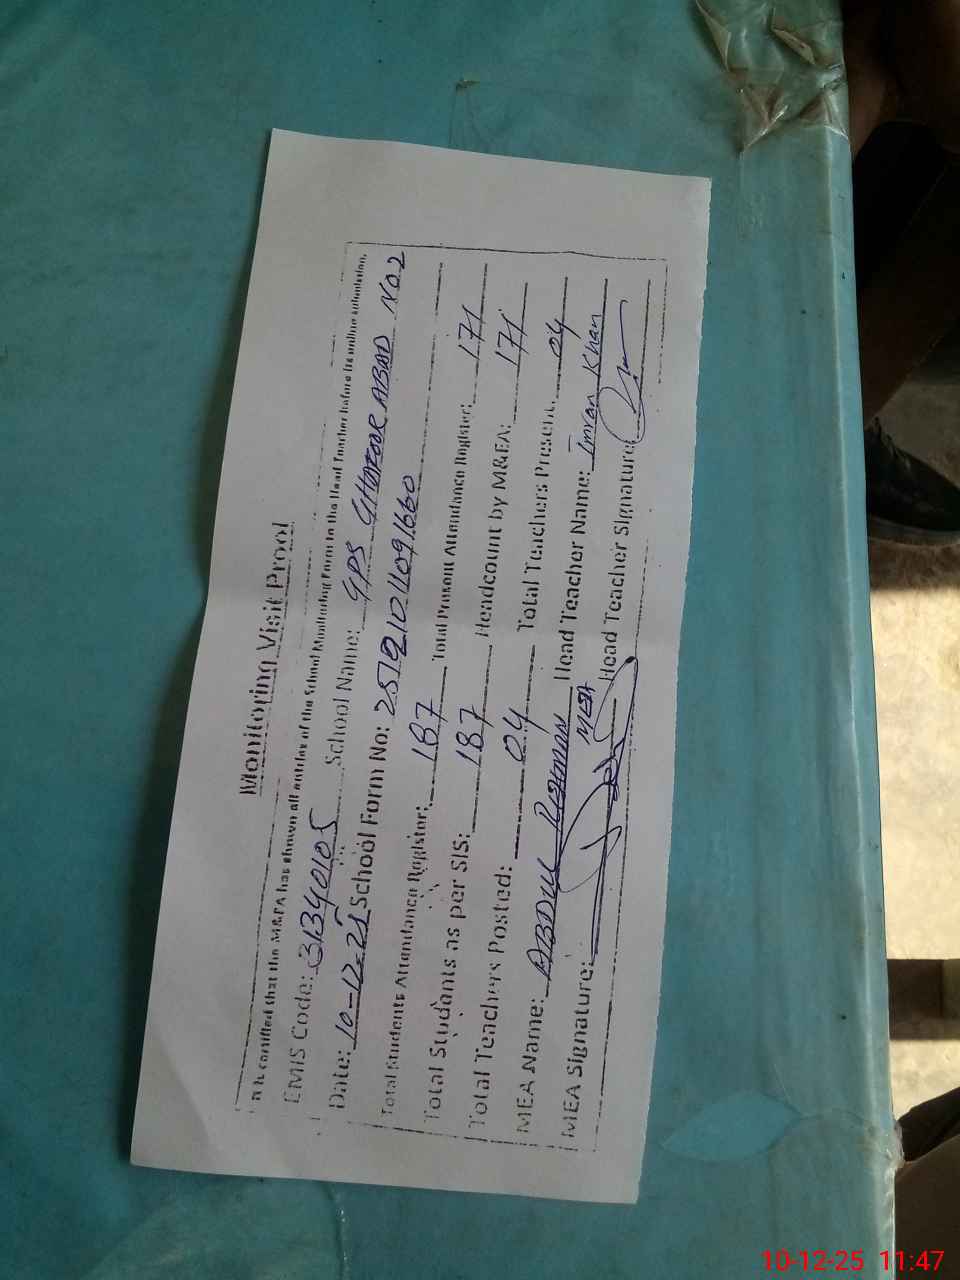 Monitoring Visit Proof
It is certified that the M&EA has shown all entries of the School Monitoring Form to the Head Teacher before its online submission.
EMIS Code: 31340105 School Name: GPS GHAFOOR ABAD NO2
Date: 10-12-25 School Form No:
Total Students Attendance Register: 187 Total Present Attendance Register: 171
Total Students as per SIS: 187 Headcount by M&EA: 171
Total Teachers Posted: 04 Total Teachers Present. 04
MEA Name: ABDUL REHMAN MEA Head Teacher Name: Imran Khan
MEA Signature: Head Teacher Signature:
10-12-25 11:47